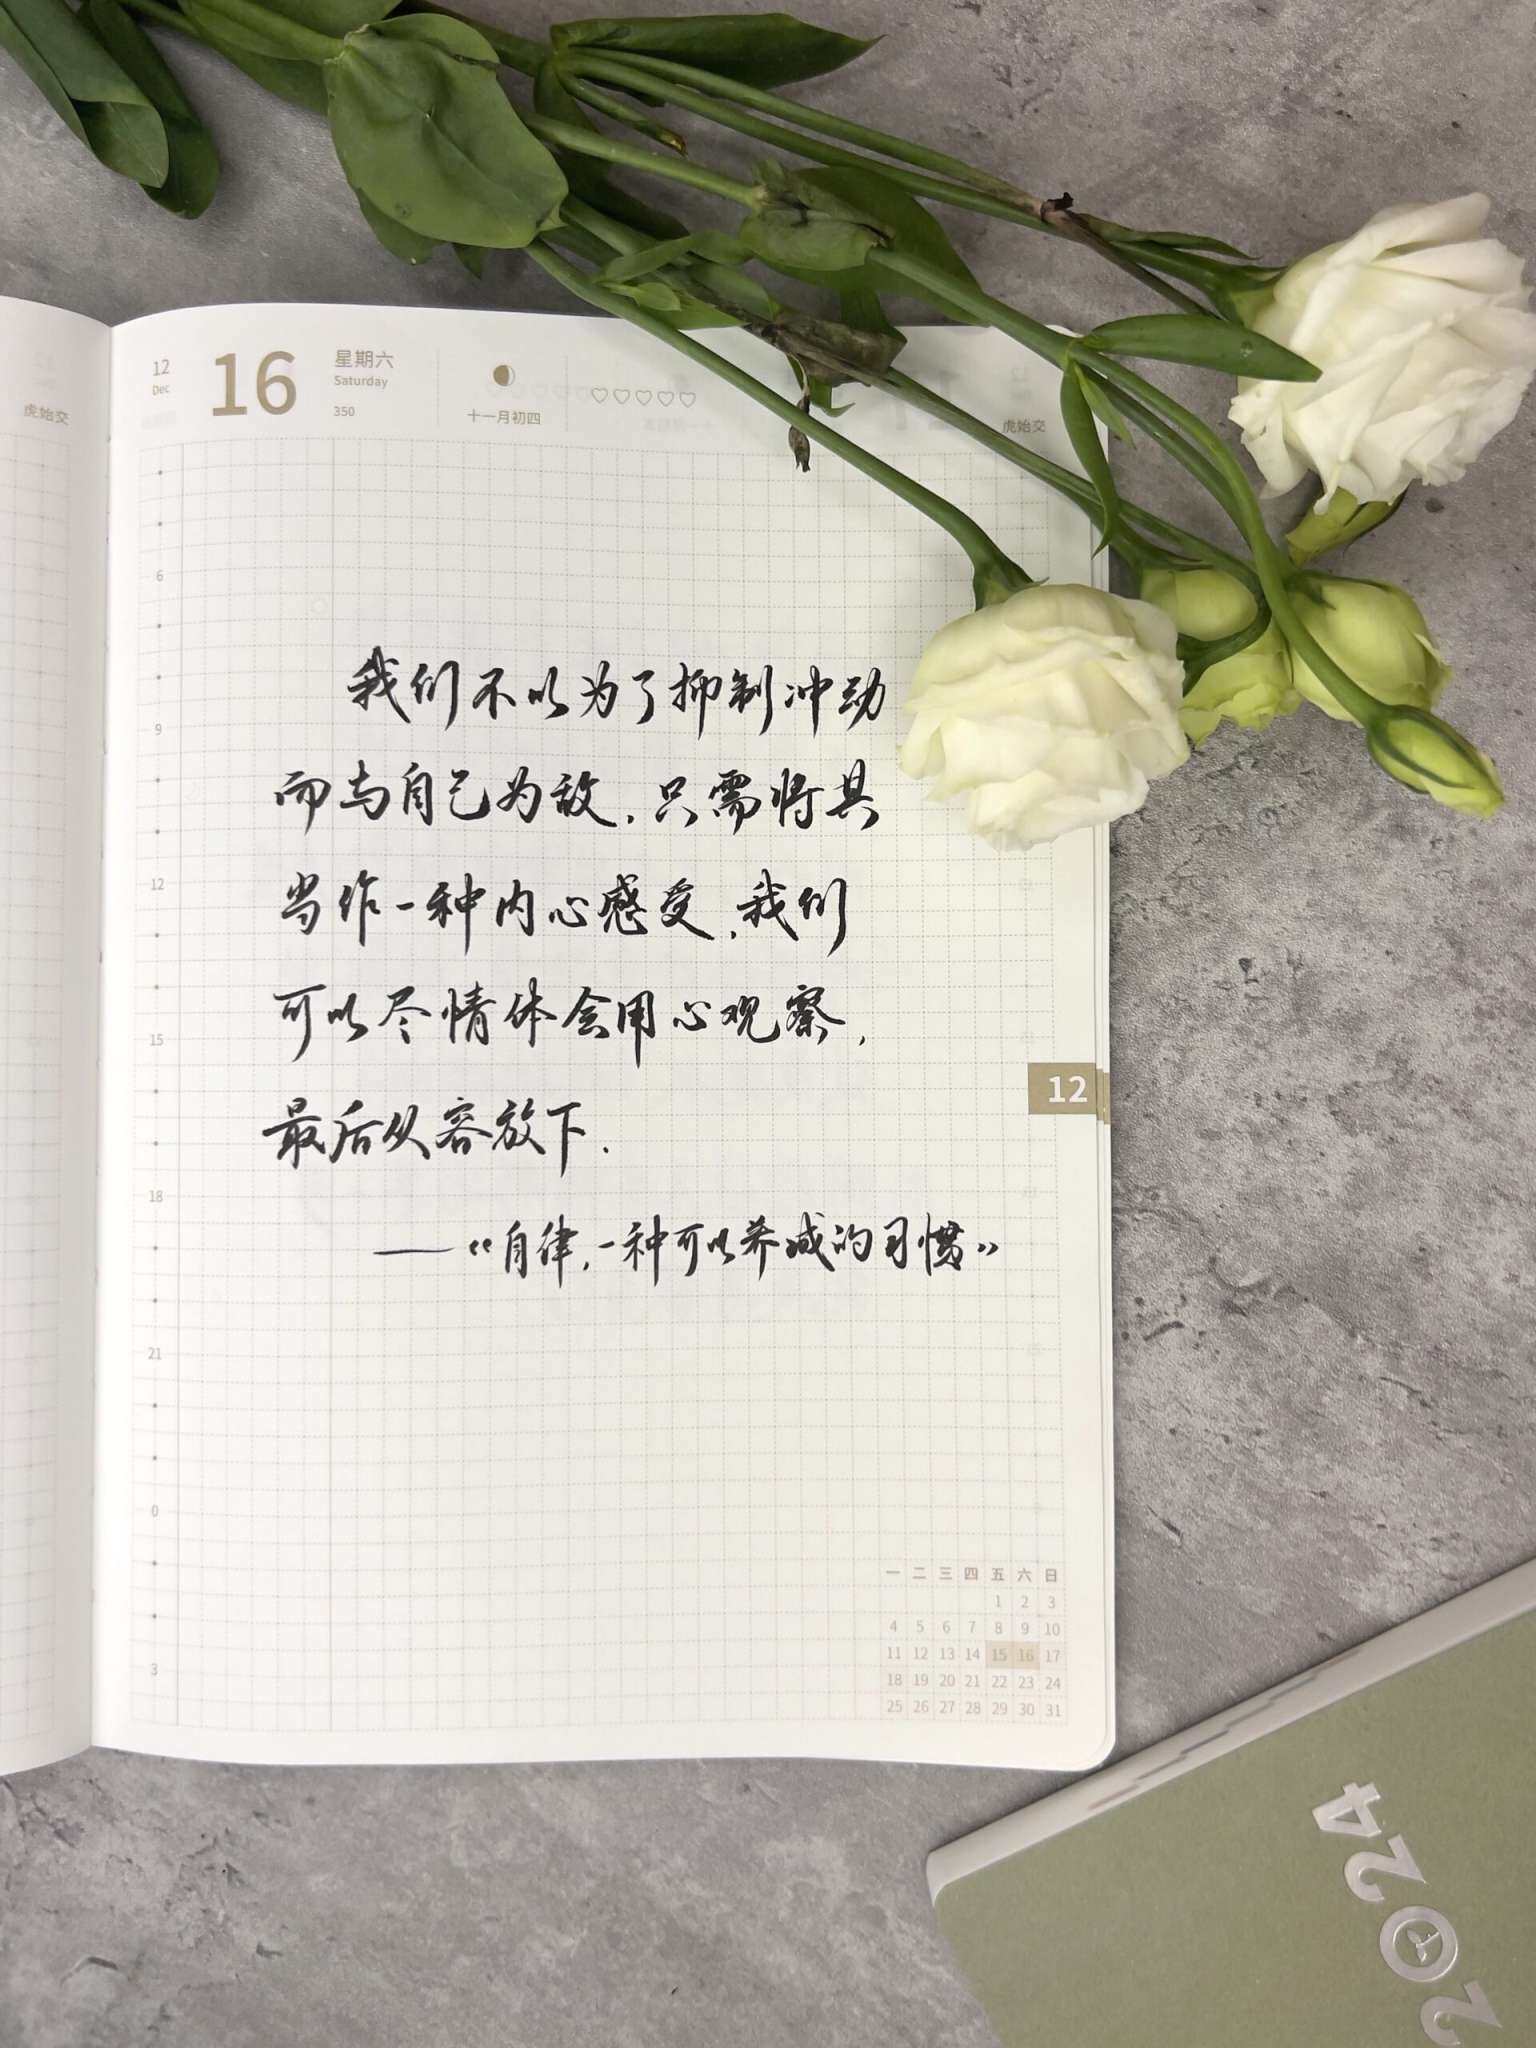 12
Dec
16
星期六
Saturday
350
十一月初四
虎始交
虎始交
6
9
12
15
18
21
0
3
我们不以为了抑制冲动
而与自己为敌，只需将其
当作一种内心感受，我们
可以尽情体会用心观察，
最后从容放下.
——《自律，一种可以养成的习惯》
12
一 二 三 四 五 六 日
1 2 3
4 5 6 7 8 9 10
11 12 13 14 15 16 17
18 19 20 21 22 23 24
25 26 27 28 29 30 31
2024